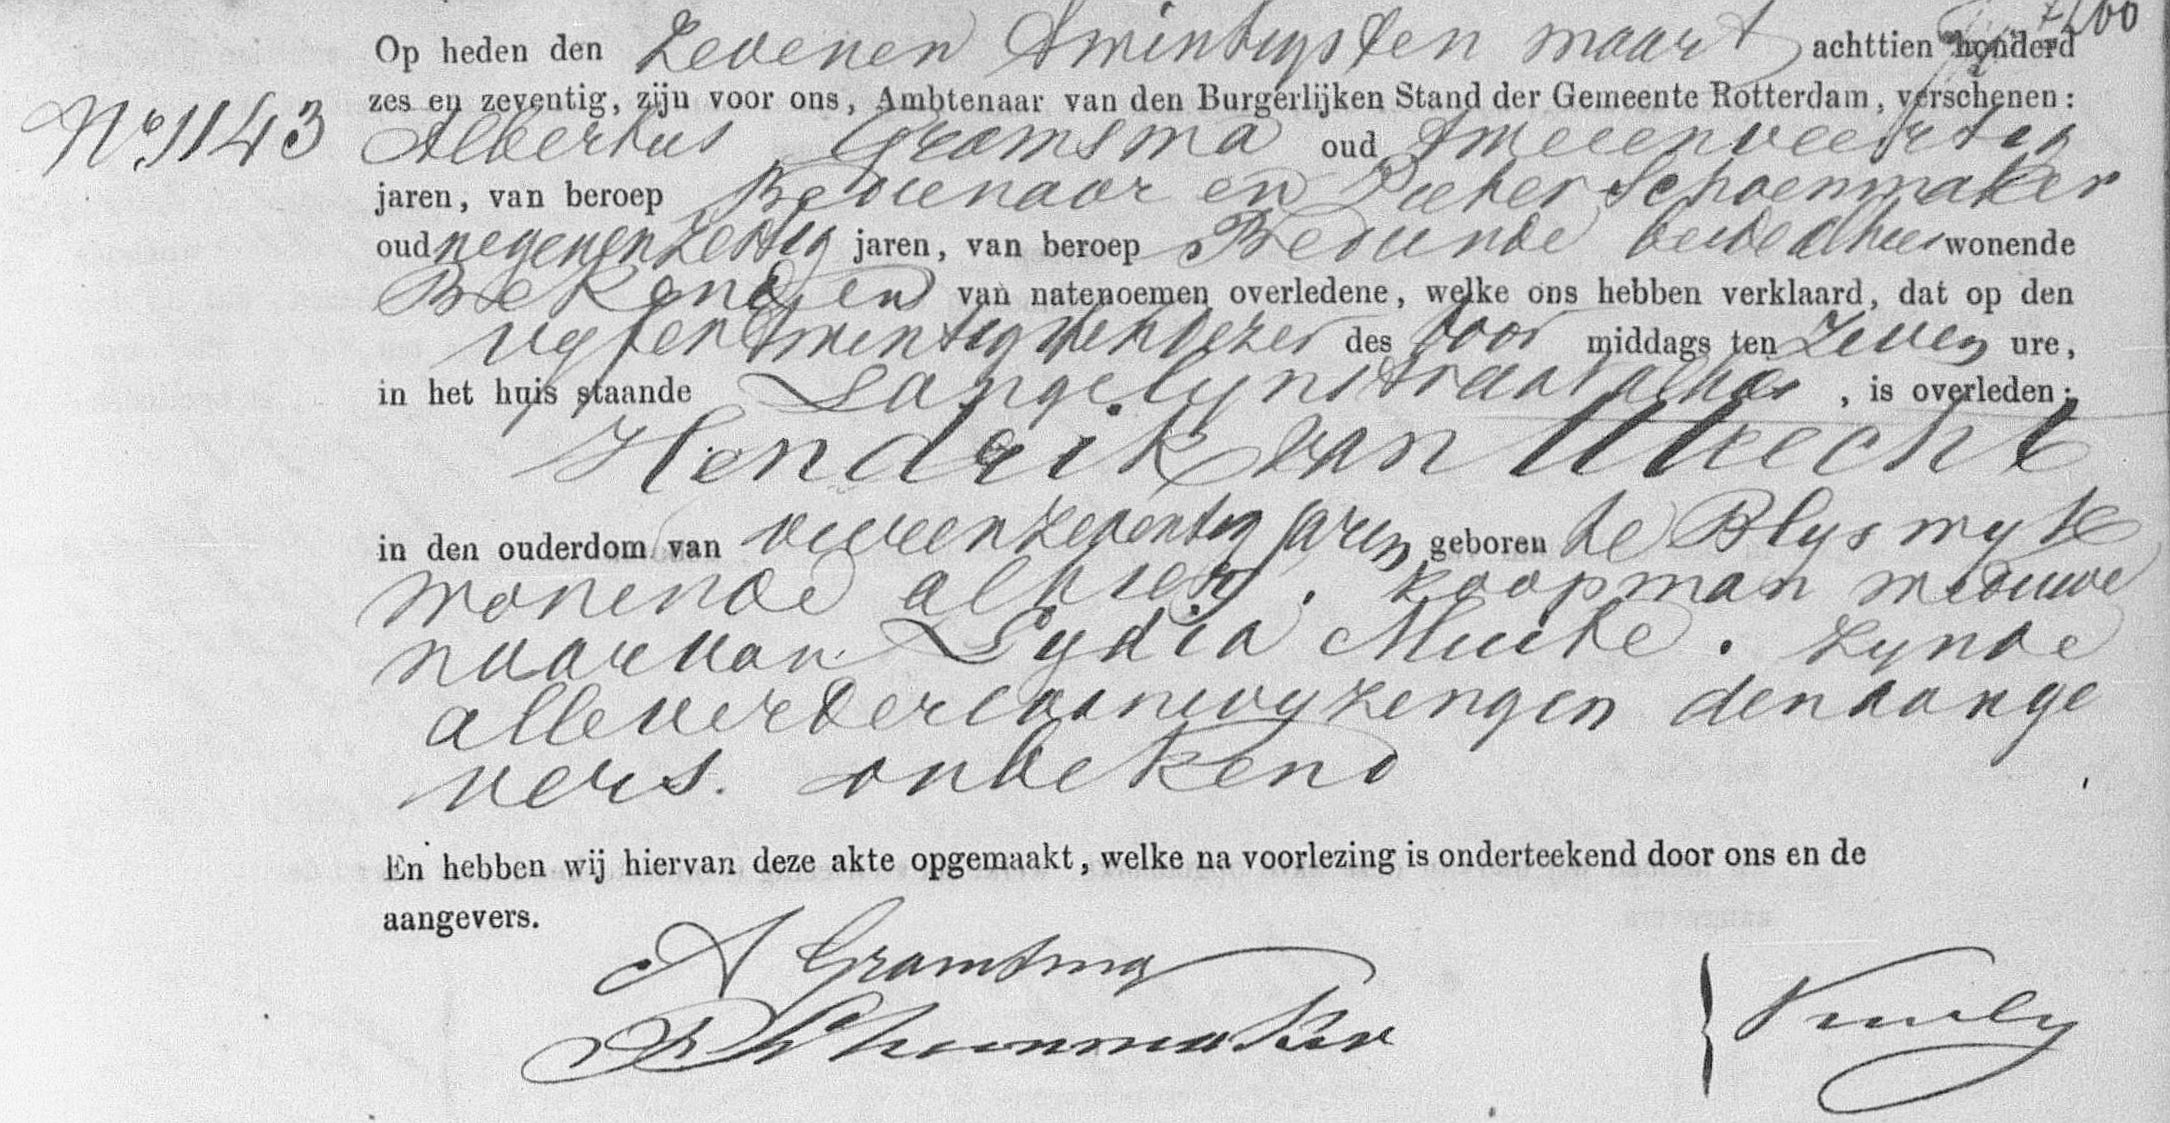 Op heden den Zevenen Twintigsten maart achttien honderd
zes en zeventig, zijn voor ons, Ambtenaar van den Burgerlijken Stand der Gemeente Rotterdam, verschenen:
No 1143
Albertus Gramsma oud Tweeenveertig
jaren, van beroep Bedienaar en Pieter Schoenmaker
oud negenenzestig jaren, van beroep Bediende beide alhier wonende
Bekenden van natenoemen overledene, welke ons hebben verklaard, dat op den
vyfentwintigsten dezer des voor middags ten Zeven ure,
in het huis staande Langelynstraat alhier, is overleden:
Hendrik van Utrecht
in den ouderdom van vierenzeventig jaren geboren te Blyswyk
wonende alhier. koopman weduwe
naar van Lydia Muite. zynde
alle verdere aanwyzingen den aange
vers. onbekend
En hebben wij hiervan deze akte opgemaakt, welke na voorlezing is onderteekend door ons en de
aangevers.
A Gramsma
P Schoenmaker